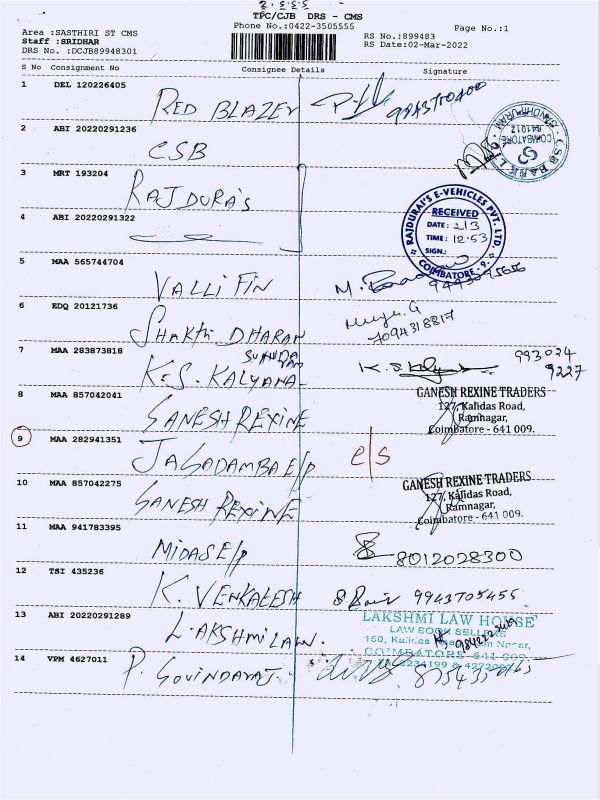 TPC/CJB DRS - CMS
Phone No.:0422-3505555
Page No.:1
Area :SASTHIRI ST CMS
Staff :SRIDHAR
DRS No. :DCJB89948301
RS No.:899483
RS Date:02-Mar-2022
S No Consignment No Consignee Details Signature
1 DEL 120226405
RED BLAZER 9943710400
2 ABI 20220291236
CSB
CSB BANK COIMBATORE 641012 GANDHIPURAM
3 MRT 193204
RAJDURA'S
4 ABI 20220291322
RAJDURAI'S E-VEHICLES PVT. LTD.
RECEIVED
DATE: 2/3
TIME: 12.53
SIGN.:
COIMBATORE - 9.
5 MAA 565744704
VALLI FIN
6 EDQ 20121736
SHAKTHI DHARAN 7094318817
7 MAA 283873818
K.S. KALYANA SUNDARAM
993024
9227
8 MAA 857042041
GANESH REXINE
GANESH REXINE TRADERS
127, Kalidas Road,
Ramnagar,
Coimbatore - 641 009.
9 MAA 282941351
JAGADAMBA E/P e/s
10 MAA 857042275
GANESH REXINE
GANESH REXINE TRADERS
127, Kalidas Road,
Ramnagar,
Coimbatore - 641 009.
11 MAA 941783395
MIDAS E/P 8012028300
12 TSI 435236
K. VENKATESH 9943705455
13 ABI 20220291289
LAKSHMI LAW.
LAKSHMI LAW HOUSE
LAW BOOK SELLERS
150, Kalidas Road, Ram Nagar,
COIMBATORE 641 009
14 VPM 4627011
P. GOVINDARAJ